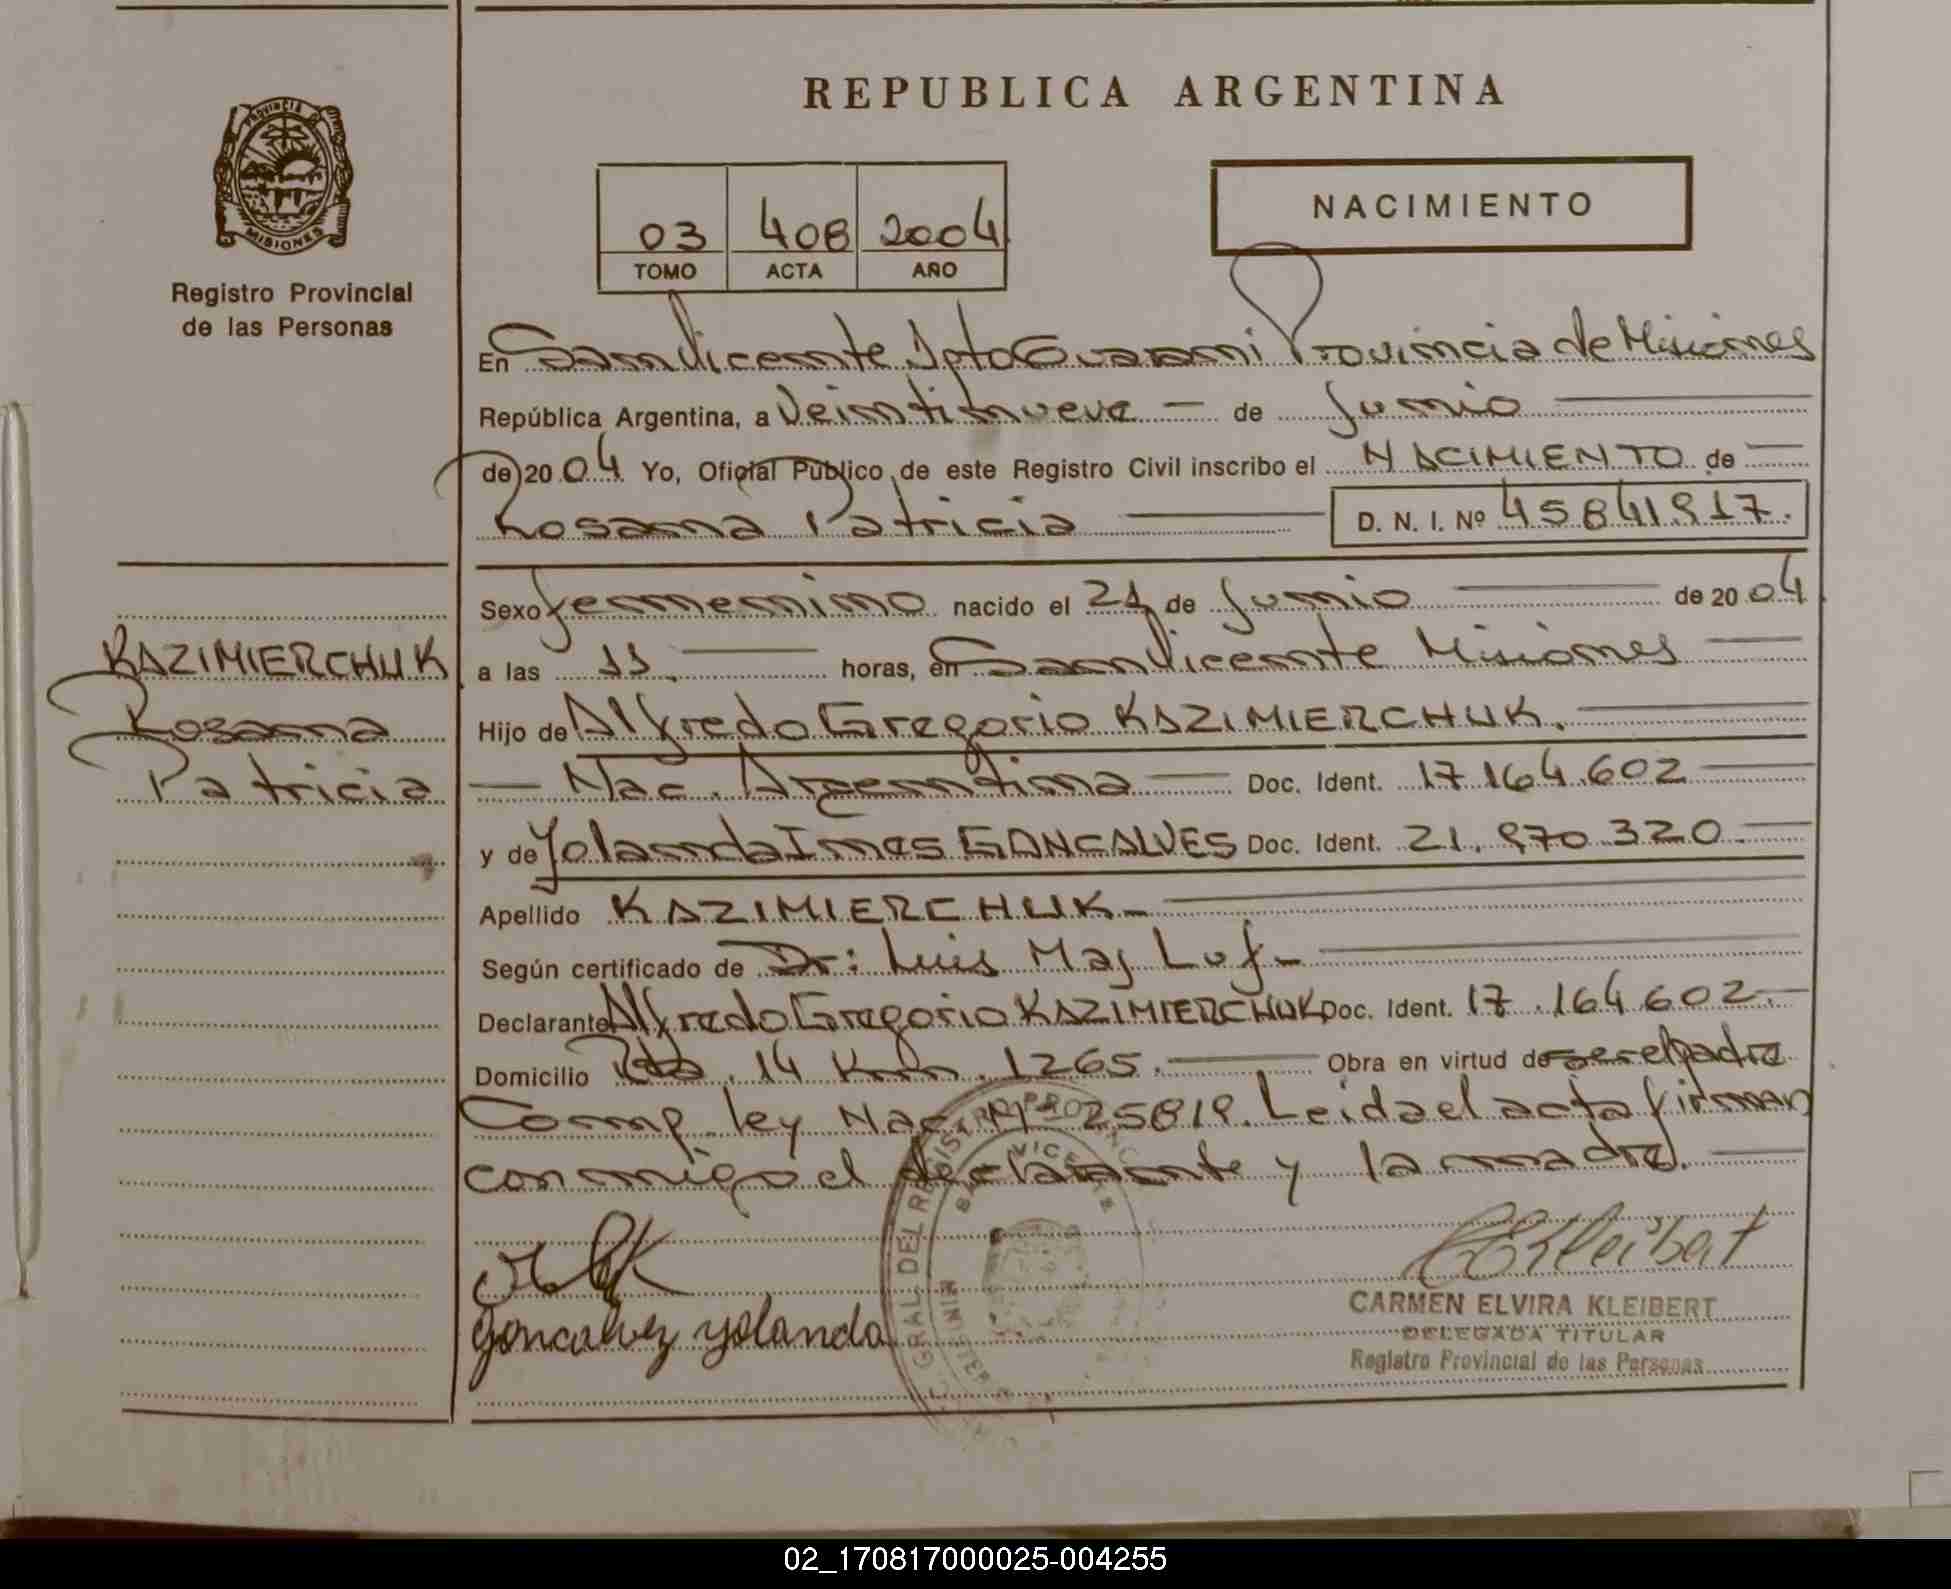 PROVINCIA DE
MISIONES
Registro Provincial
de las Personas
KAZIMIERCHUK
Rosana
Patricia
REPUBLICA ARGENTINA
03 408 2004
TOMO ACTA AÑO
NACIMIENTO
En San Vicente Dpto Guarani Provincia de Misiones
República Argentina, a Veintinueve — de Junio
de 2004 Yo, Oficial Público de este Registro Civil inscribo el NACIMIENTO de —
Rosana Patricia — D. N. I. Nº 45841917.
Sexo femenino nacido el 21 de Junio — de 2004
a las 11. — horas, en San Vicente Misiones —
Hijo de Alfredo Gregorio KAZIMIERCHUK. —
— Nac. Argentina — Doc. Ident. 17.164.602 —
y de Yolanda Ines GONCALVES Doc. Ident. 21.970.320. —
Apellido KAZIMIERCHUK. —
Según certificado de Dr: Luis Maj Luf. —
Declarante Alfredo Gregorio KAZIMIERCHUK Doc. Ident. 17.164.602. —
Domicilio Rta. 14 Km. 1265. — Obra en virtud de ser el padre
Comp. ley Nac. Nº 25819. Leida el acta firman
conmigo el declarante y la madre. —
Goncalvez Yolanda
CARMEN ELVIRA KLEIBERT
DELEGADA TITULAR
Registro Provincial de las Personas
02_170817000025-004255